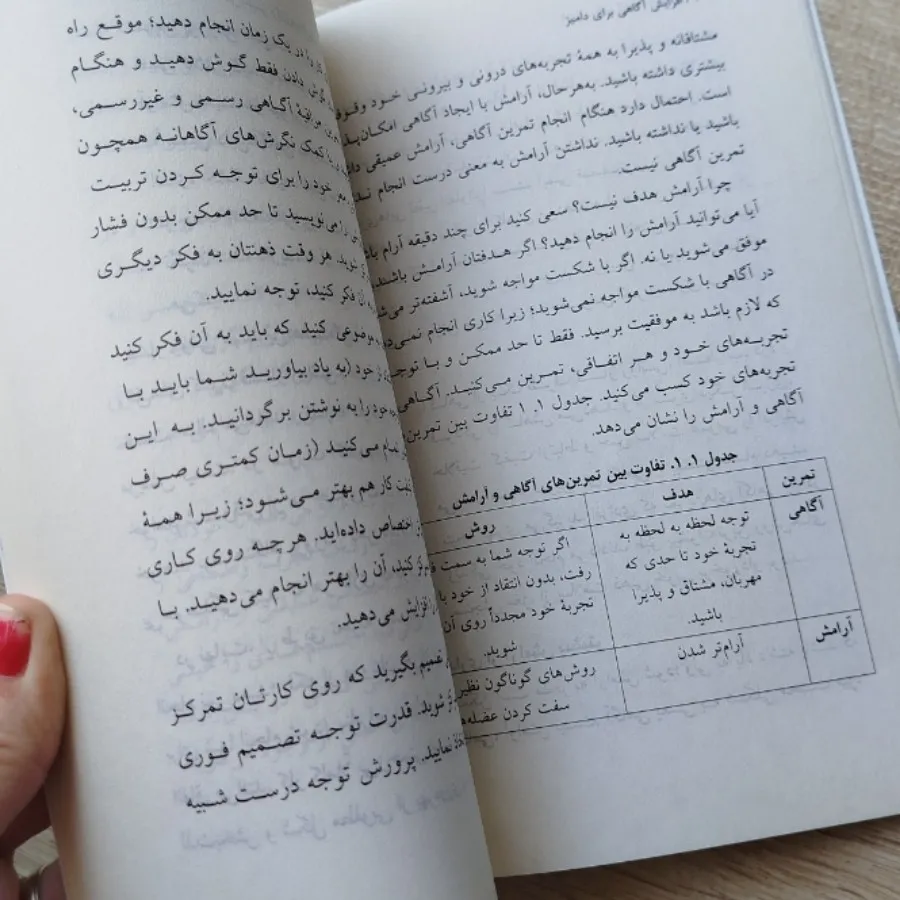 افزایش آگاهی برای دامیز
مشتاقانه و پذیرا به همهٔ تجربه‌های درونی و بیرونی خود وقوف
بیشتری داشته باشید. به‌هرحال، آرامش با ایجاد آگاهی
است. احتمال دارد هنگام انجام تمرین آگاهی، آرامش عمیقی
باشید یا نداشته باشید. نداشتن آرامش به معنی درست انجام
تمرین آگاهی نیست.
چرا آرامش هدف نیست؟ سعی کنید برای چند دقیقه آرام
آیا می‌توانید آرامش را انجام دهید؟ اگر هدفتان آرامش باشد،
موفق می‌شوید یا نه. اگر با شکست مواجه شوید، آشفته‌تر
در آگاهی با شکست مواجه نمی‌شوید؛ زیرا کاری انجام
که لازم باشد به موفقیت برسید. فقط تا حد ممکن و با
تجربه‌های خود و هر اتفاقی، تمرین می‌کنید. آگاهی
تجربه‌های خود کسب می‌کنید. جدول ۱. ۱ تفاوت بین
آگاهی و آرامش را نشان می‌دهد.
جدول ۱. ۱. تفاوت بین تمرین‌های آگاهی و آرامش
تمرین هدف روش
آگاهی توجه لحظه به لحظه به اگر توجه شما به سمت
تجربهٔ خود تا حدی که رفت، بدون انتقاد از خود
مهربان، مشتاق و پذیرا تجربهٔ خود مجدداً روی آن
باشید. شوید.
آرامش آرام‌تر شدن روش‌های گوناگون نظیر
سفت کردن
در یک زمان انجام دهید؛ موقع راه
دادن فقط گوش دهید و هنگام
مراقبهٔ آگاهی رسمی و غیررسمی،
کمک نگرش‌های آگاهانه همچون
خود را برای توجه کردن تربیت
می‌نویسید تا حد ممکن بدون فشار
شوید. هر وقت ذهنتان به فکر دیگری
آن فکر کنید، توجه نمایید.
موضوعی کنید که باید به آن فکر کنید
از خود (به یاد بیاورید شما باید با
خود را به نوشتن برگردانید. به این
می‌کنید (زمان کمتری صرف
کار هم بهتر می‌شود؛ زیرا همهٔ
اختصاص داده‌اید. هرچه روی کاری
کنید، آن را بهتر انجام می‌دهید. با
افزایش می‌دهید.
بگیرید که روی کارتان تمرکز
شوید. قدرت توجه تصمیم فوری
نمایید. پرورش توجه درست شبیه